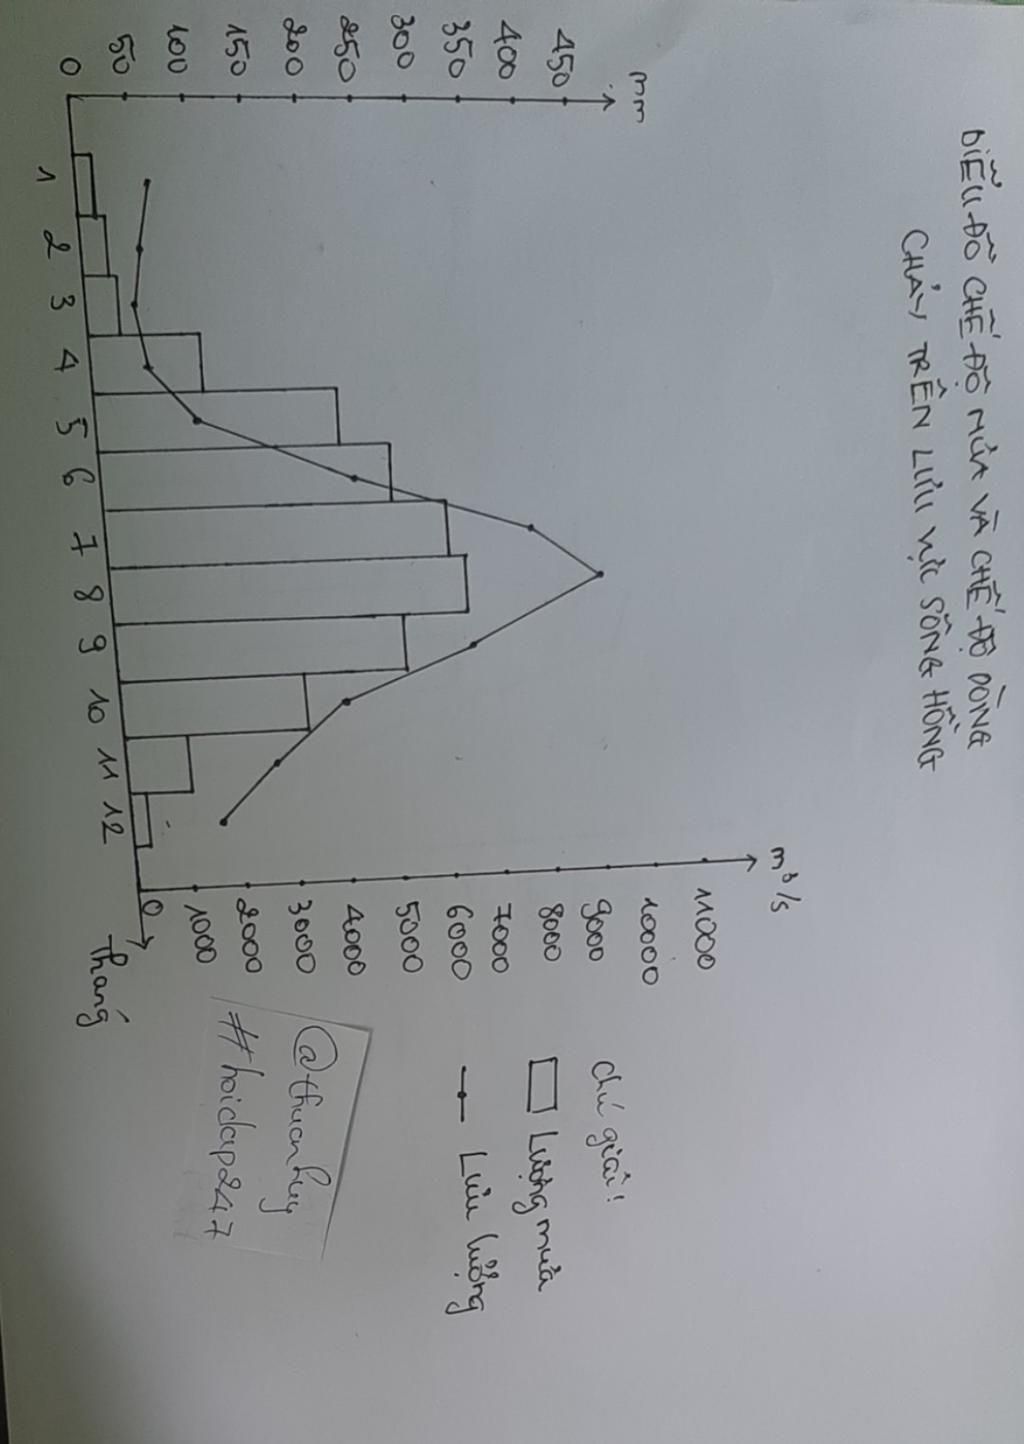 BIỂU ĐỒ CHẾ ĐỘ MƯA VÀ CHẾ ĐỘ DÒNG
CHẢY TRÊN LƯU VỰC SÔNG HỒNG
mm
450
400
350
300
250
200
150
100
50
0
m³/s
11000
10000
9000
8000
7000
6000
5000
4000
3000
2000
1000
0
1 2 3 4 5 6 7 8 9 10 11 12
Tháng
Chú giải!
Lượng mưa
Lưu lượng
@thuanhuy
#hoidap247